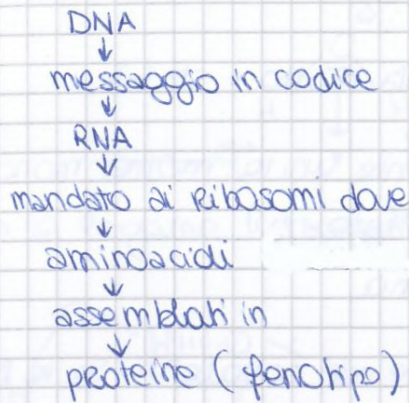 DNA
↓
messaggio in codice
↓
RNA
↓
mandato ai ribosomi dove
↓
aminoacidi
↓
assemblati in
↓
proteine (fenotipo)